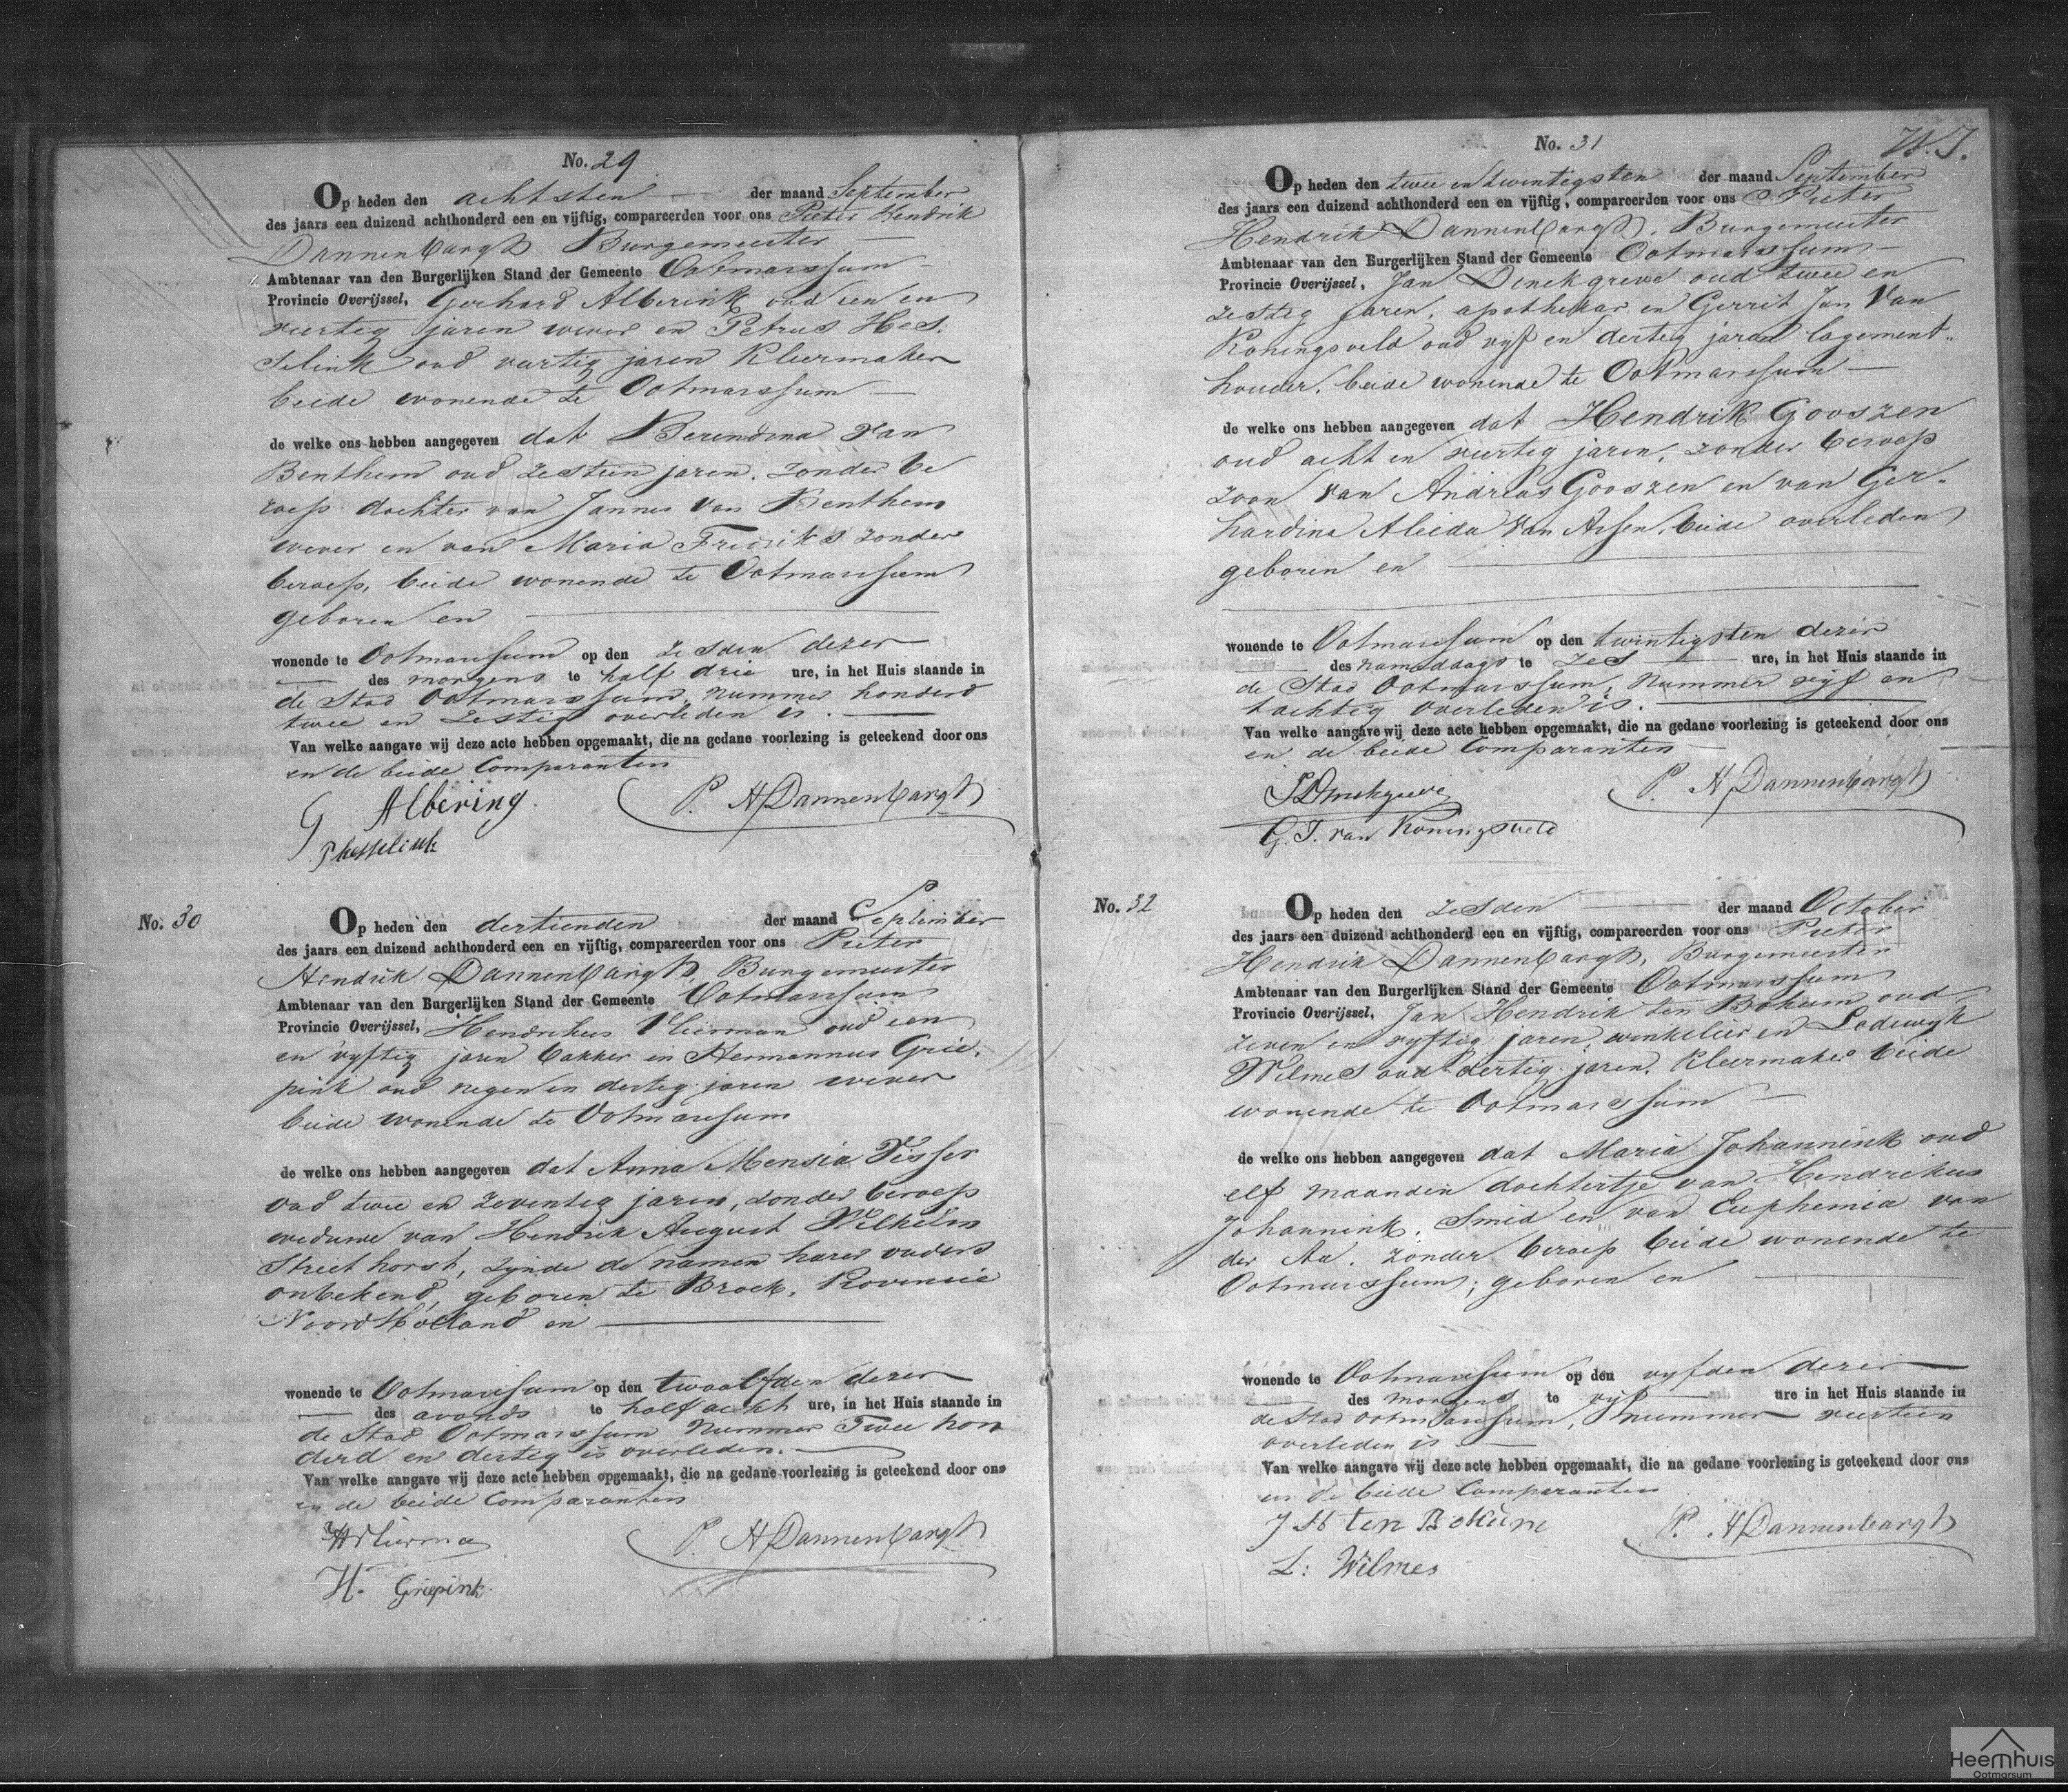 No. 29
Op heden den achtsten der maand September
des jaars een duizend achthonderd een en vijftig, compareerden voor ons Pieter Hendrik
Dannenbargh Burgemeester
Ambtenaar van den Burgerlijken Stand der Gemeente Ootmarssum
Provincie Overijssel, Gerhard Alberink oud een en
veertig jaren wever en Petrus Hes,
selink oud veertig jaren Kleermaker
beide wonende te Ootmarssum
de welke ons hebben aangegeven dat Berendina Van
Benthem oud zestien jaren, zonder be
roep dochter van Jannes van Benthem
wever en van Maria Fredriks zonder
beroep, beide wonende te Ootmarssum
geboren en
wonende te Ootmarssum op den zesden dezer
des morgens te half drie ure, in het Huis staande in
de Stad Ootmarssum, nummer honderd
twee en zestig overleden is.
Van welke aangave wij deze acte hebben opgemaakt, die na gedane voorlezing is geteekend door ons
en de beide Comparanten
G Albering P. H Dannenbargh
P hesselink
No. 30
Op heden den dertienden der maand September
des jaars een duizend achthonderd een en vijftig, compareerden voor ons Pieter
Hendrik Dannenbargh, Burgemeester
Ambtenaar van den Burgerlijken Stand der Gemeente Ootmarssum
Provincie Overijssel, Hendrikus Vlierman oud een
en vyftig jaren bakker en Hermannus Grie,
pink oud negen en dertig jaren wever
beide wonende te Ootmarssum
de welke ons hebben aangegeven dat Anna Mensia Visser
oud twee en zeventig jaren, zonder beroep
weduwe van Hendrik August Wilhelm
Striethorst, zynde de namen harer ouders
onbekend, geboren te Broek, Provincie
Noord Holland en
wonende te Ootmarssum op den twaalfden dezer
des avonds te half acht ure, in het Huis staande in
de Stad Ootmarssum Nummer Twee hon
derd en dertig is overleden.
Van welke aangave wij deze acte hebben opgemaakt, die na gedane voorlezing is geteekend door ons
en de beide Comparanten
P. H Dannenbargh
H. Griepink
No. 31
Op heden den twee en twintigsten der maand September
des jaars een duizend achthonderd een en vijftig, compareerden voor ons Pieter
Hendrik Dannenbargh, Burgemeester
Ambtenaar van den Burgerlijken Stand der Gemeente Ootmarssum
Provincie Overijssel, Jan Dinckgreve oud twee en
zestig jaren, apotheker en Gerrit Jan Van
Koningsveld oud vyf en dertig jaren logement„
houder, beide wonende te Ootmarssum
de welke ons hebben aangegeven dat Hendrik Gooszen
oud acht en veertig jaren, zonder beroep
zoon van Andries Gooszen en van Ger„
hardina Aleida Van Assen, beide overleden
geboren en
wonende te Ootmarssum op den twintigsten dezer
des namiddags te zes ure, in het Huis staande in
de Stad Ootmarssum, Nummer vyf en
tachtig overleden is.
Van welke aangave wij deze acte hebben opgemaakt, die na gedane voorlezing is geteekend door ons
en de beide Comparanten
P. H Dannenbargh
G. J. van Koningsveld
No. 32
Op heden den zesden der maand October
des jaars een duizend achthonderd een en vijftig, compareerden voor ons Pieter
Hendrik Dannenbargh, Burgemeester
Ambtenaar van den Burgerlijken Stand der Gemeente Ootmarssum
Provincie Overijssel, Jan Hendrik ten Bokum oud
zeven en vyftig jaren, winkelier en Lodewyk
Wilmes oud dertig jaren, Kleermaker beide
wonende te Ootmarssum
de welke ons hebben aangegeven dat Maria Johannink oud
elf maanden dochtertje van Hendrikus
Johannink, Smid en van Euphemia van
der Aa, zonder beroep beide wonende te
Ootmarssum, geboren en
wonende te Ootmarssum op den vyfden dezer
des morgens te vyf ure in het Huis staande in
de Stad Ootmarssum, nummer veertien
overleden is
Van welke aangave wij deze acte hebben opgemaakt, die na gedane voorlezing is geteekend door ons
en de beide Comparanten
J H ten Bokum P. H Dannenbargh
L: Wilmes
Heemhuis
Ootmarsum